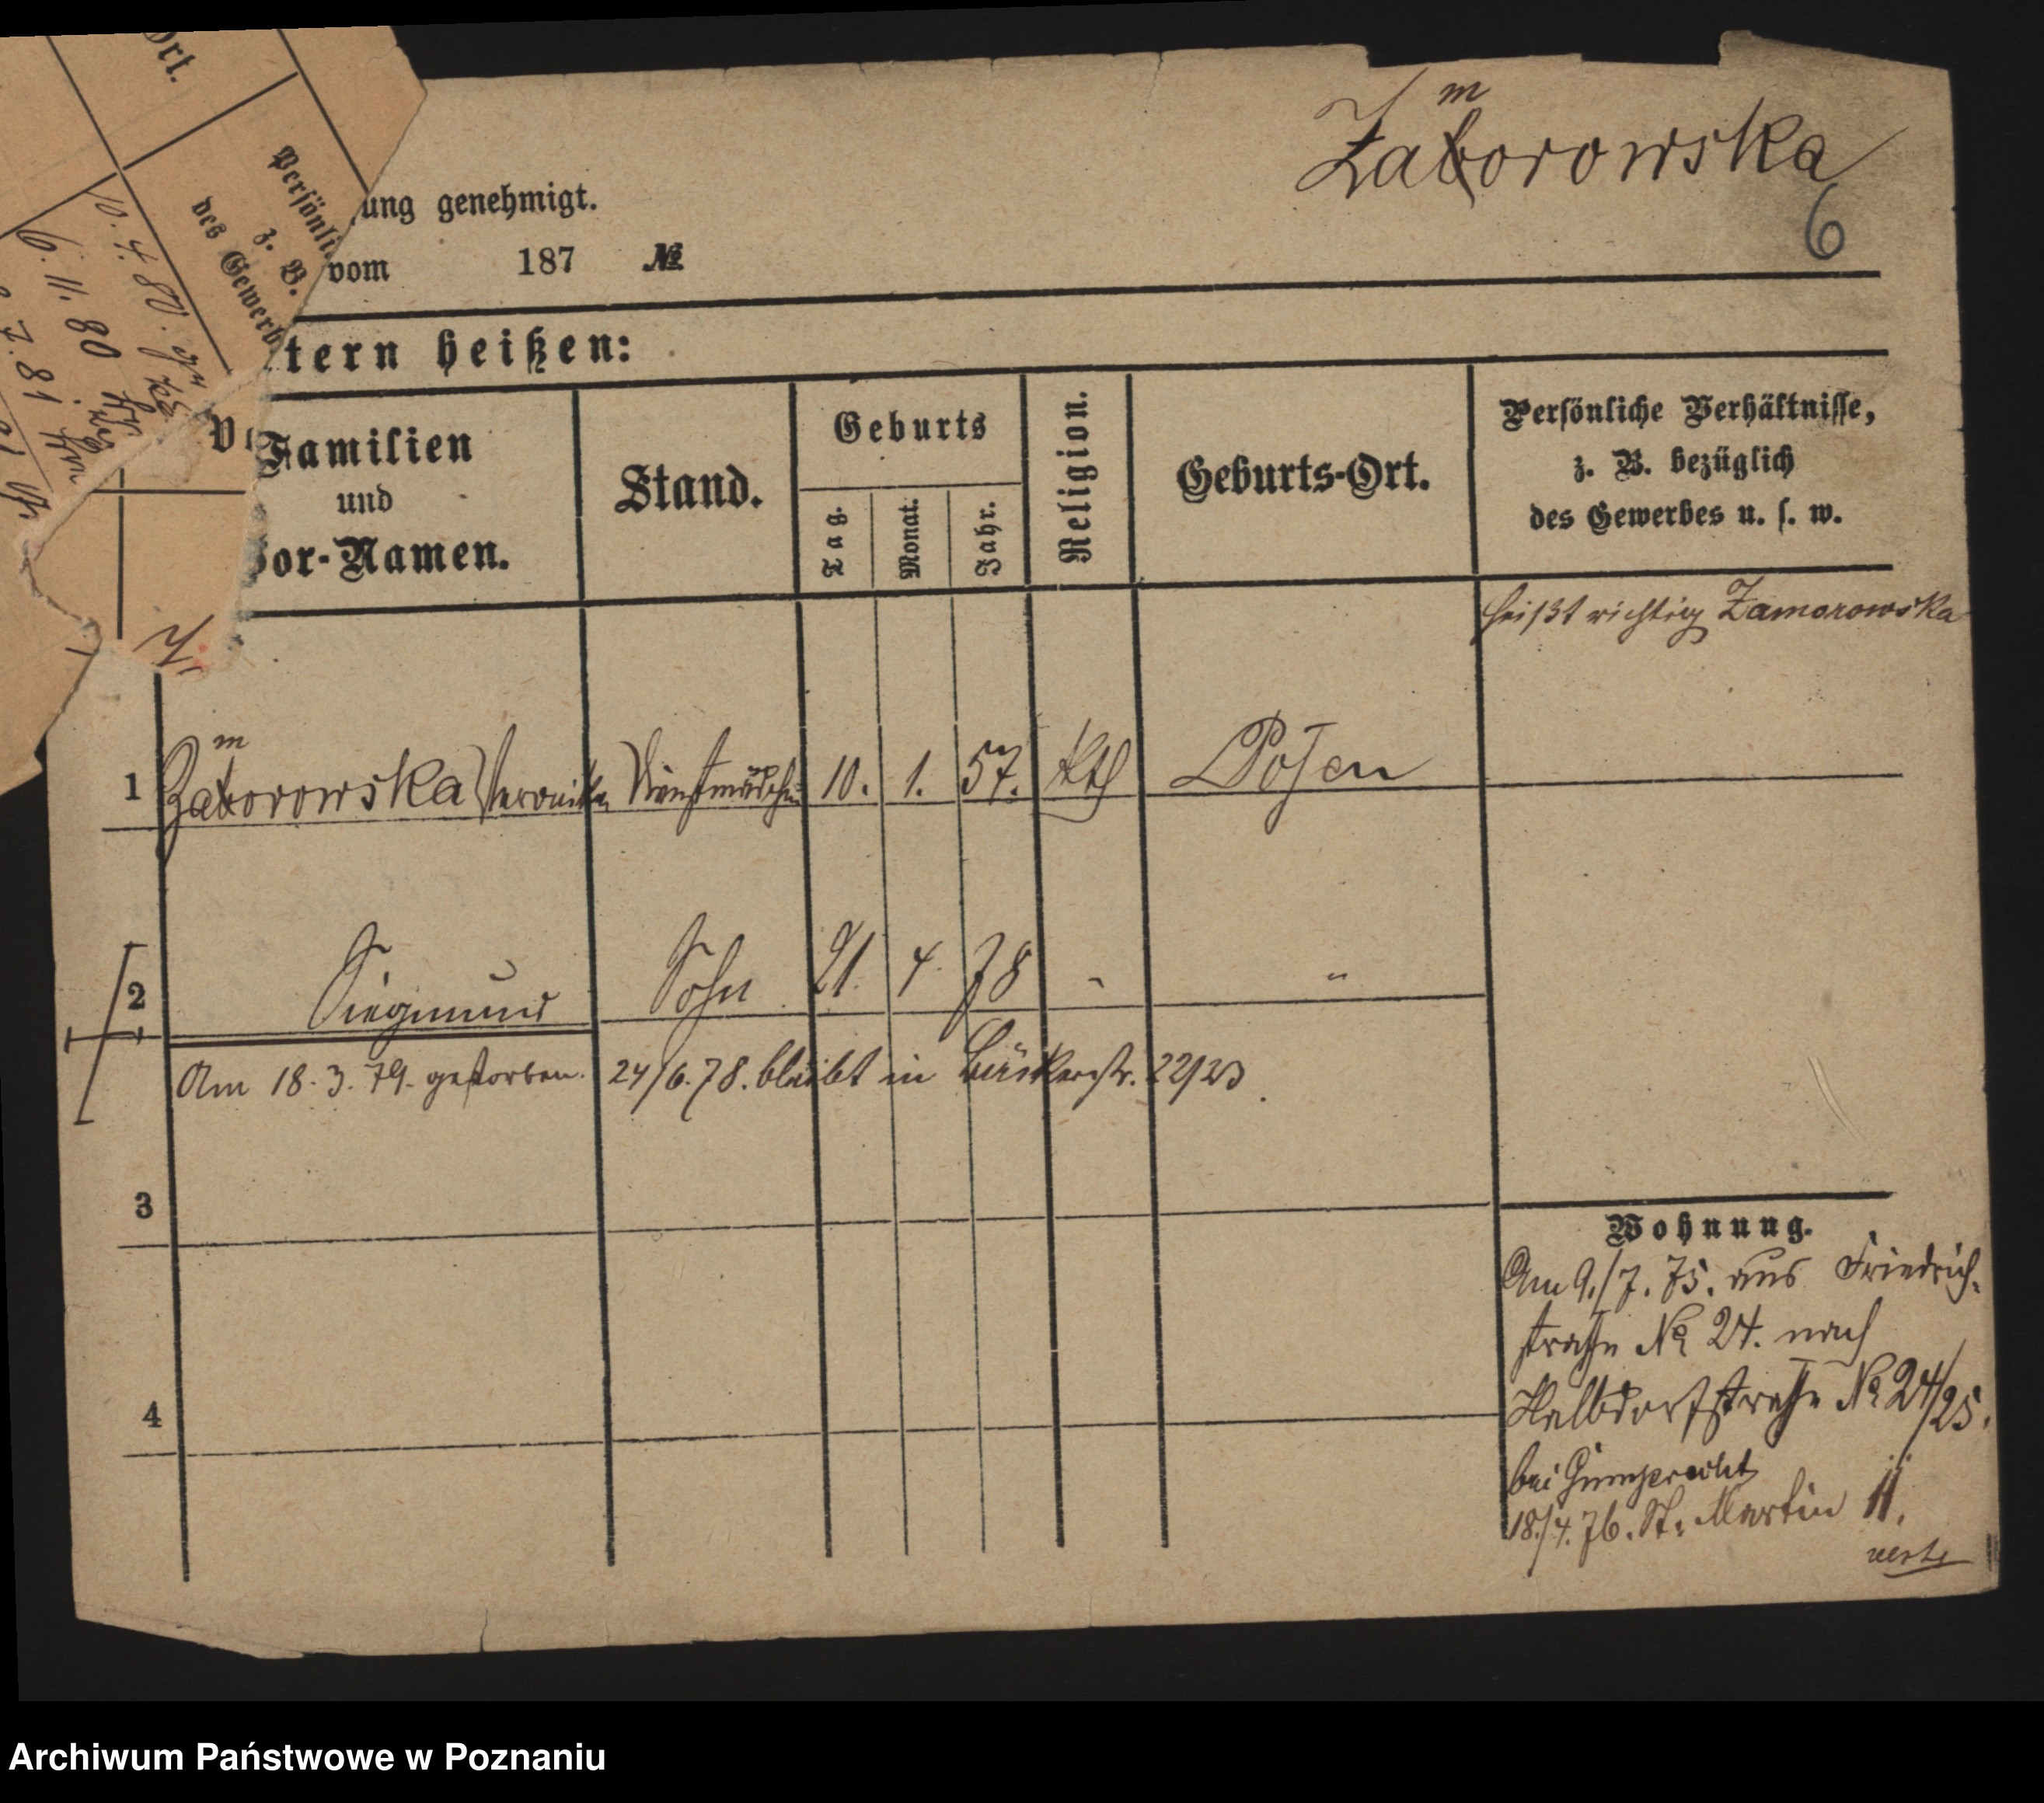 m
Zaborowska
6
Ort.
Persönli
z. B.
des Gewerb
10. 4. 80.
6. 11. 80
7. 81
ung genehmigt.
vom 187 №
tern heißen:
Familien
und
or-Namen.
Stand.
Geburts
Tag.
Monat.
Jahr.
Religion.
Geburts-Ort.
Persönliche Verhältnisse,
z. B. bezüglich
des Gewerbes u. s. w.
heißt richtig Zamorowska
m
1 Zaborowska Veronika Dienstmädchen 10. 1. 57. kth Posen
2 Siegmund Sohn 21. 4. 78 " "
Am 18. 3. 79. gestorben. 24/6. 78. bleibt in Bäckerstr. 22/23
3
4
Wohnung.
Am 9./7. 75. aus Friedrich-
straße № 24. nach
Halbdorfstraße № 24/25.
bei Gumprecht
18./4. 76. St. Martin 11.
verte
Archiwum Państwowe w Poznaniu